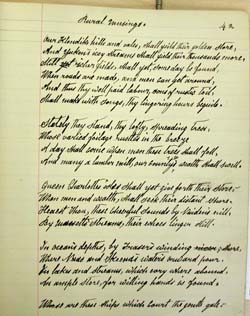 Rural Musings.
42
Our Klondike hills and vales, shall yield their golden store,
And Yukon's icy streams shall yield their thousands more,
Still richer fields, shall yet, some day be found,
When roads are made, and men can get around,
And thus they well paid labour, sons of rustic toil,
Shall make with songs, thy lingering hours beguile.
Stately they stand, thy lofty, spreading trees,
Whose varied foliage rustles in the breeze
A day shall come when men these trees shall fell,
And many a lumber mill, our county's wealth shall swell.
Queen Charlotte's isles shall yet give forth their store,
When men and wealth, shall seek their distant shore.
Hearest thou, those cheerful sounds by Naiden's rill,
By Massett's streams, their echoes linger still.
In oceanic depths, by Fraser's winding river, shore,
Where Naas and Skeena's waters outward pour.
In lakes and streams, which every where abound.
An ample store, for willing hands is found.
Whose are these ships which court the gentle gale